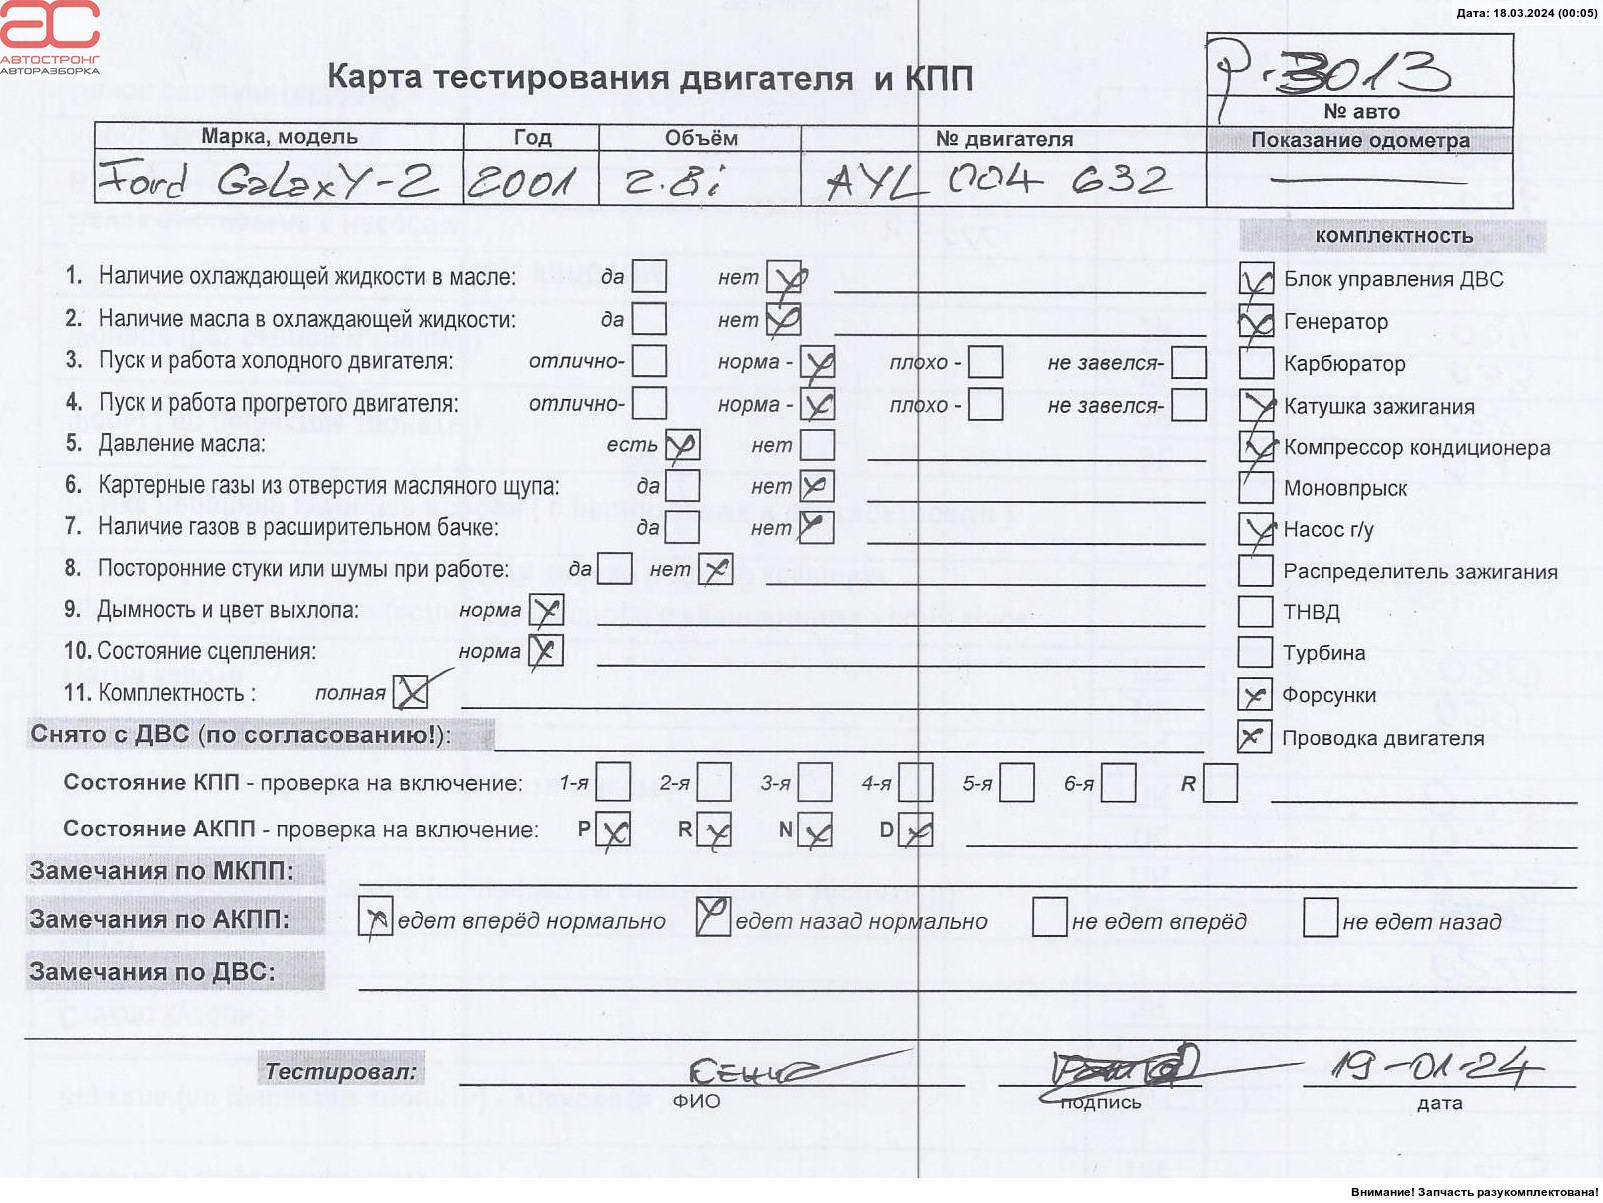 Дата: 18.03.2024 (00:05)
АВТОСТРОНГ
АВТОРАЗБОРКА
Карта тестирования двигателя и КПП
р.3013
№ авто
Марка, модель Год Объём № двигателя Показание одометра
Ford GaLaxY-2 2001 2.8i AYL 004 632
комплектность
1. Наличие охлаждающей жидкости в масле: да нет
Блок управления ДВС
2. Наличие масла в охлаждающей жидкости: да нет
Генератор
3. Пуск и работа холодного двигателя: отлично- норма - плохо - не завелся-
Карбюратор
4. Пуск и работа прогретого двигателя: отлично- норма - плохо - не завелся-
Катушка зажигания
5. Давление масла: есть нет
Компрессор кондиционера
6. Картерные газы из отверстия масляного щупа: да нет
Моновпрыск
7. Наличие газов в расширительном бачке: да нет
Насос г/у
8. Посторонние стуки или шумы при работе: да нет
Распределитель зажигания
9. Дымность и цвет выхлопа: норма
ТНВД
10. Состояние сцепления: норма
Турбина
11. Комплектность : полная
Форсунки
Снято с ДВС (по согласованию!):
Проводка двигателя
Состояние КПП - проверка на включение: 1-я 2-я 3-я 4-я 5-я 6-я R
Состояние АКПП - проверка на включение: P R N D
Замечания по МКПП:
Замечания по АКПП: едет вперёд нормально едет назад нормально не едет вперёд не едет назад
Замечания по ДВС:
Тестировал: 19-01-24
ФИО подпись дата
Внимание! Запчасть разукомплектована!